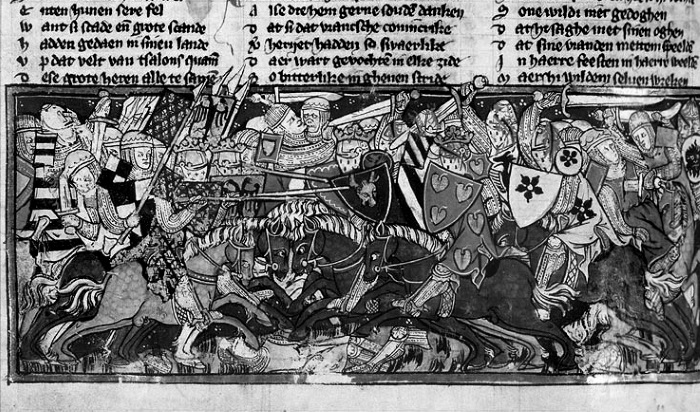 E nten hunen sere fel
W ant si scade en̄ grote scande
H adden gedaen in sinen lande
U p dat velt van tsalons quamē
D ese grote heren alle te samē
A lse die hem gerne soudē danken
D at si dat vransche conincrike
V erhert hadden so swaerlike
D aer wart gevochten in elke zide
S o bitterlike in ghenen stride
S one wildi niet gedoghen
D at hi saghe met sinen oghen
D at sine vianden
I n haerre feesten in haerre
M aer hi wildem seluen wreken